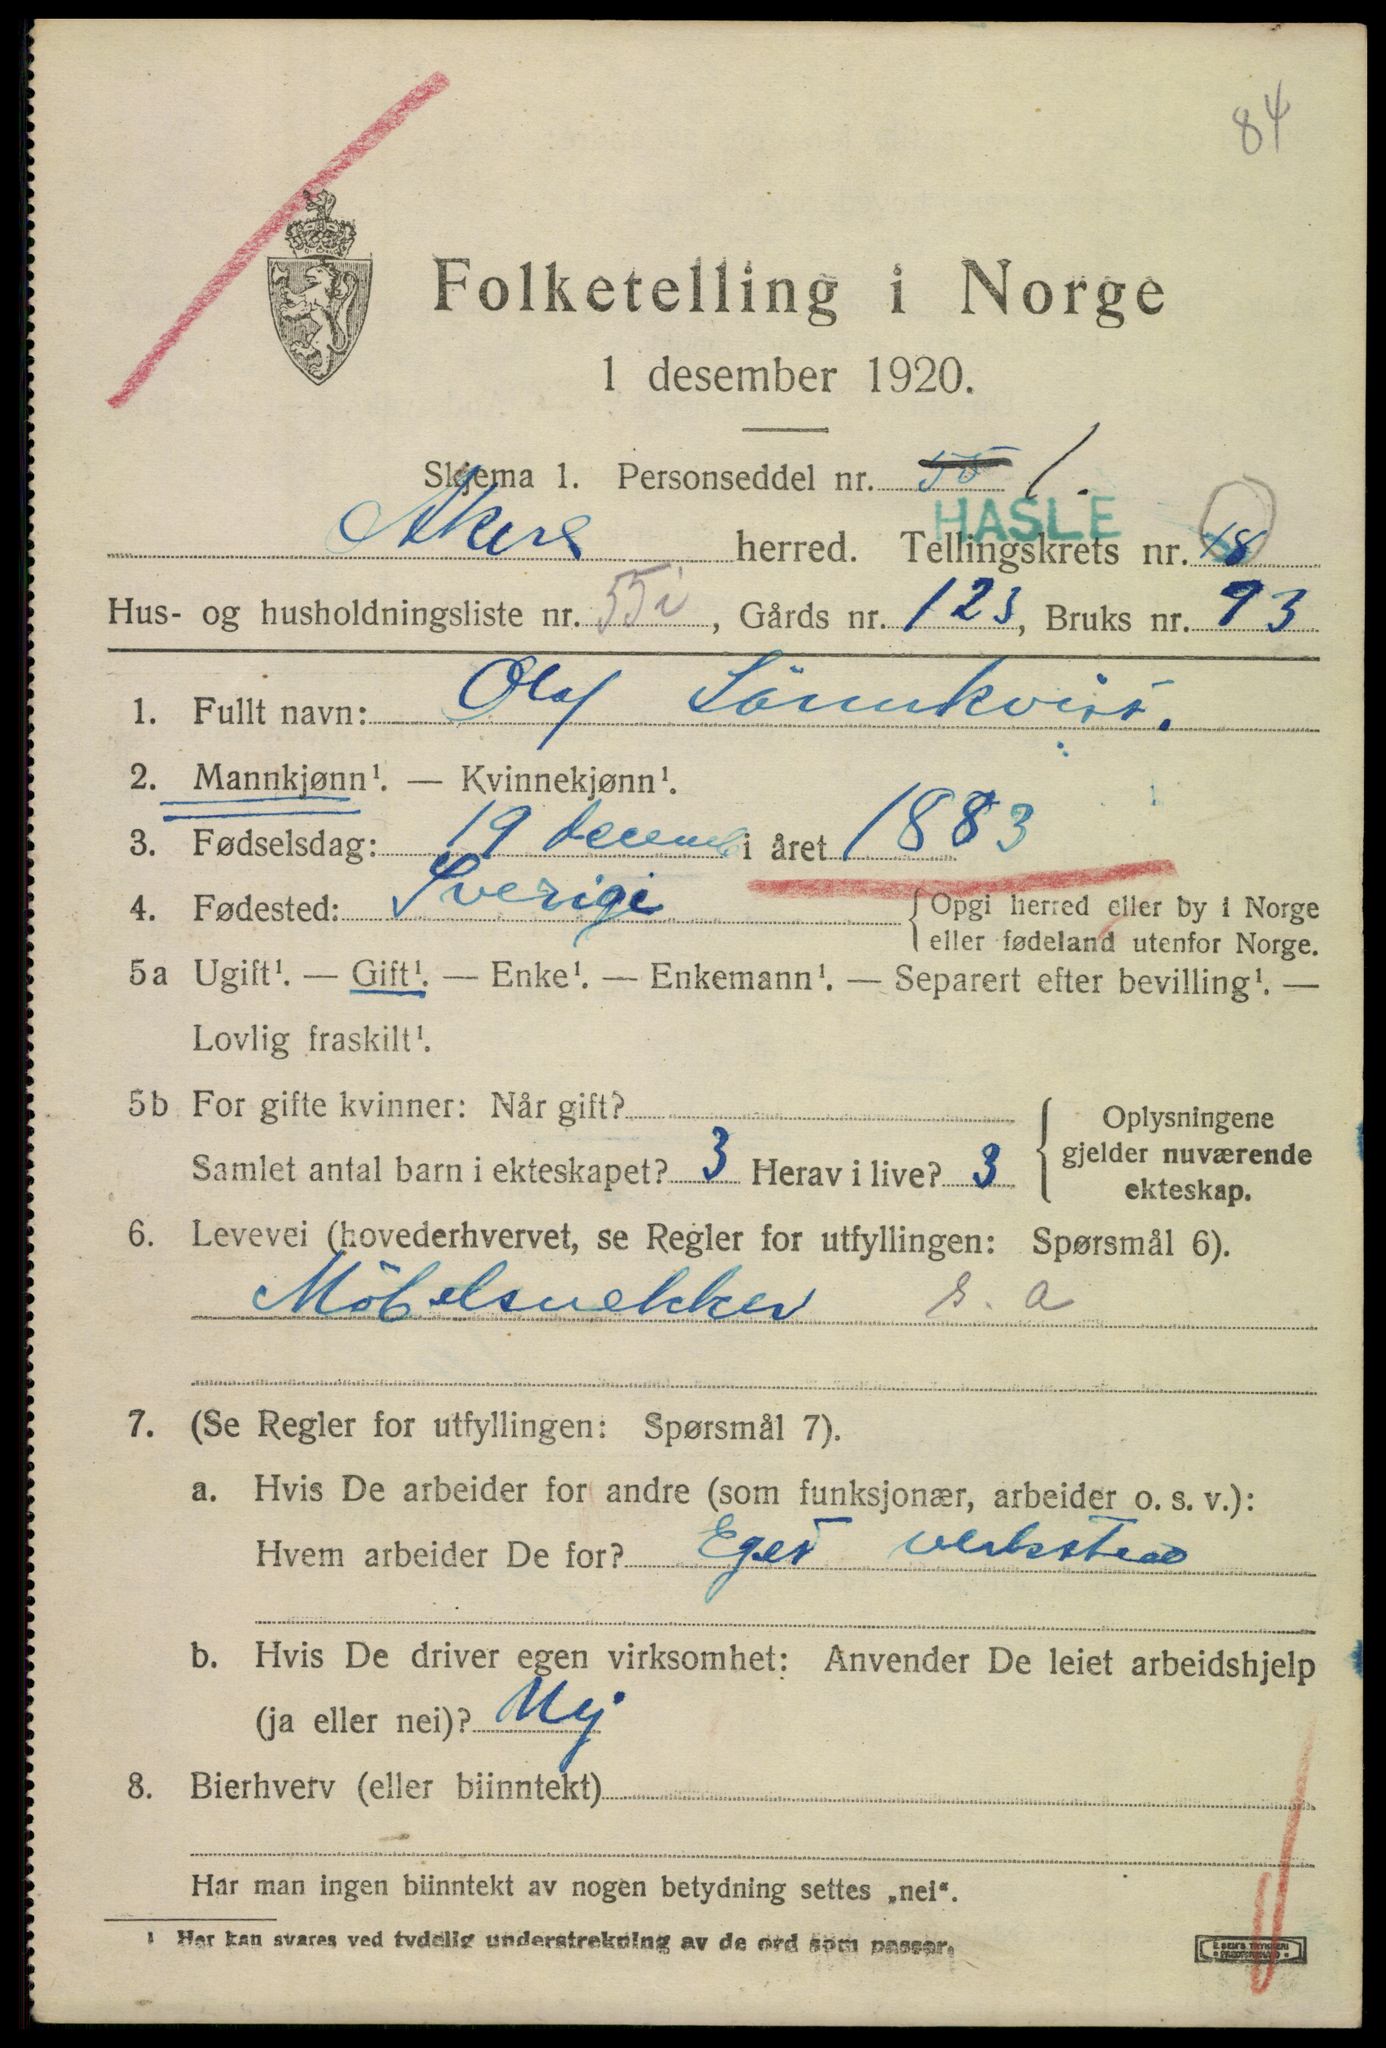 84
Folketelling i Norge
1 desember 1920.
Skjema 1. Personseddel nr. 55 1.
HASLE
Akers herred. Tellingskrets nr. 18
Hus- og husholdningsliste nr. 55i, Gårds nr. 123, Bruks nr. 93
1. Fullt navn: Olaf Lönnkvist.
2. Mannkjønn¹. — Kvinnekjønn¹.
3. Fødselsdag: 19 decemb i året 1883
4. Fødested: Sverige { Opgi herred eller by i Norge
eller fødeland utenfor Norge.
5a Ugift¹. — Gift¹. — Enke¹. — Enkemann¹. — Separert efter bevilling¹. —
Lovlig fraskilt¹.
5b For gifte kvinner: Når gift? { Oplysningene
gjelder nuværende
Samlet antal barn i ekteskapet? 3 Herav i live? 3 ekteskap.
6. Levevei (hovederhvervet, se Regler for utfyllingen: Spørsmål 6).
Möbelsnekker s. a
7. (Se Regler for utfyllingen: Spørsmål 7).
a. Hvis De arbeider for andre (som funksjonær, arbeider o. s. v.):
Hvem arbeider De for? Eget verksted
b. Hvis De driver egen virksomhet: Anvender De leiet arbeidshjelp
(ja eller nei)? Nej
8. Bierhverv (eller biinntekt)
Har man ingen biinntekt av nogen betydning settes „nei“.
¹ Her kan svares ved tydelig understrekning av de ord som passer.